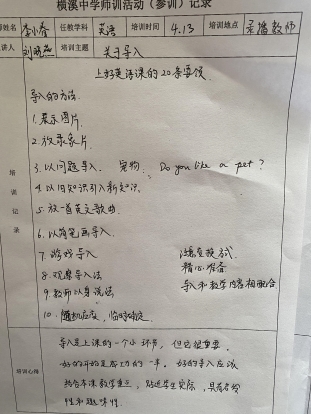 横溪中学师训活动(参训)记录
姓名 李小春 任教学科 英语 培训时间 4.13 培训地点 录播教师
讲人 刘晓燕 培训主题 关于导入
上好英语课的20条要领
导入的方法
1. 展示图片
2. 放录象片
3. 以问题导入. 宠物: Do you like a pet?
4. 以旧知识引入新知识.
5. 放一首英文歌曲.
6. 以简笔画导入.
7. 游戏导入
8. 观摩导入法
9. 教师以身说法
10. 随机应变, 临时确定.
变换方式
精心准备
导入和教学内容相融合
培训记录
导入是上课的一个小环节, 但它很重要.
好的开始是成功的一半. 好的导入应该
结合本课教学重点, 贴近学生实际, 具有
性和趣味性.
培训心得